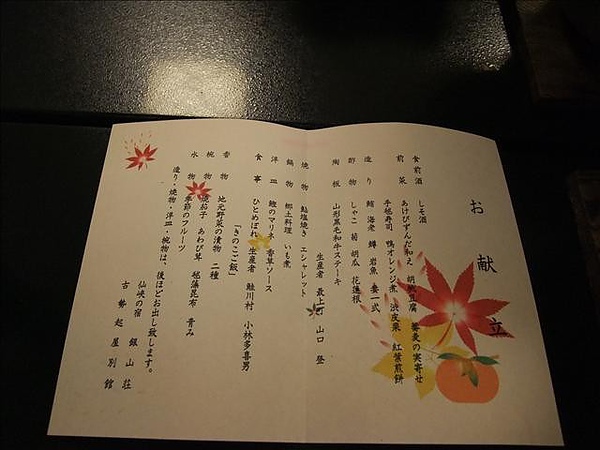 お献立
食前酒 しそ酒
前菜 あけびずんだ和え 胡桃豆腐 蕎麦の実寄せ
手毬寿司 鴨オレンジ煮 渋皮栗 紅葉煎餅
造り 鮪 海老 鱒 岩魚 妻一式
酢物 しゃこ 菊 胡瓜 花蓮根
陶板 山形黒毛和牛ステーキ
生産者 最上町 山口 登
焼物 鮎塩焼き エシャレット
鍋物 郷土料理 いも煮
洋皿 鰹のマリネ 香草ソース
食事 ひとめぼれ 生産者 鮭川村 小林多喜男
「きのこご飯」
香物 地元野菜の漬物 二種
椀物 茄子 あわび茸 とろろ昆布 青み
水物 季節のフルーツ
造り・焼物・洋皿・椀物は、後ほどお出し致します。
仙峡の宿 銀山荘
古勢起屋別館